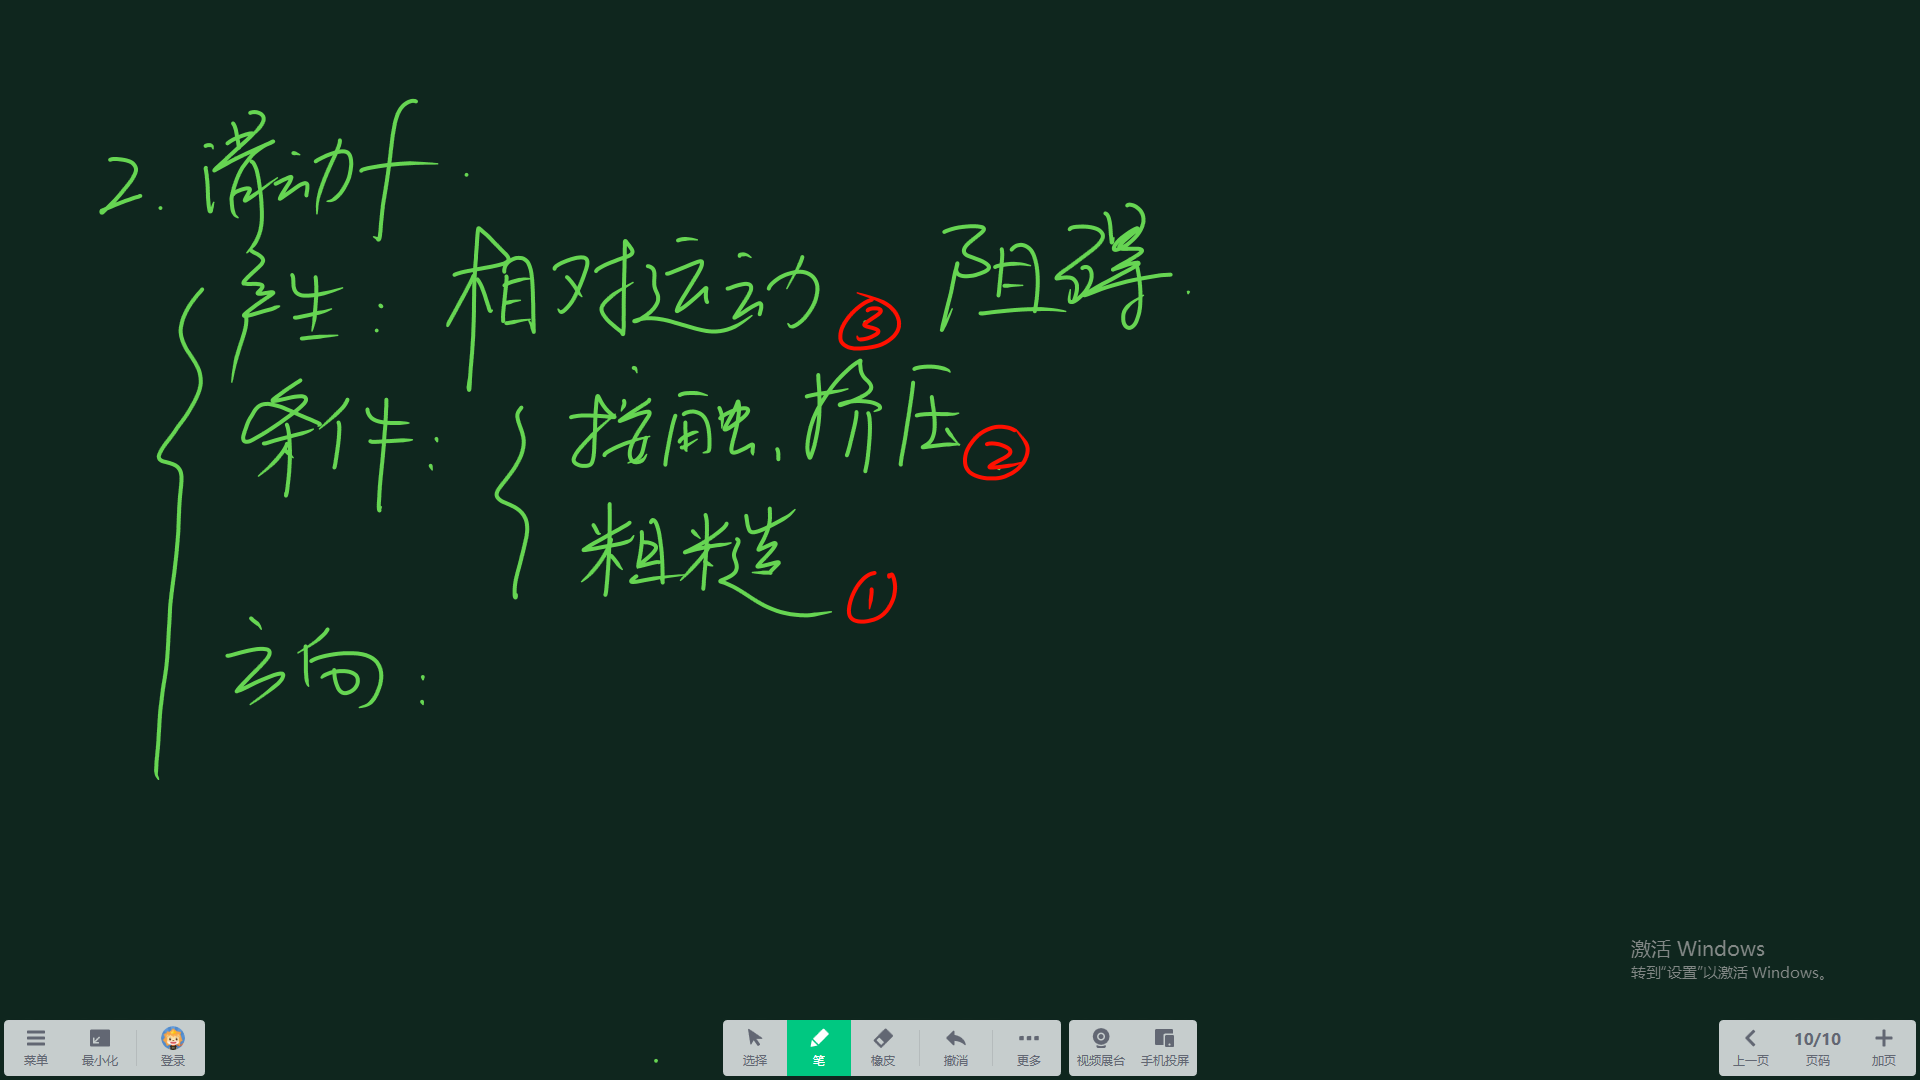 2. 滑动f.
产生: 相对运动③ 阻碍.
条件: 接触、挤压②
粗糙①
方向:
激活 Windows
转到“设置”以激活 Windows。
菜单 最小化 登录 选择 笔 橡皮 撤消 更多 视频展台 手机投屏 上一页 10/10 页码 加页